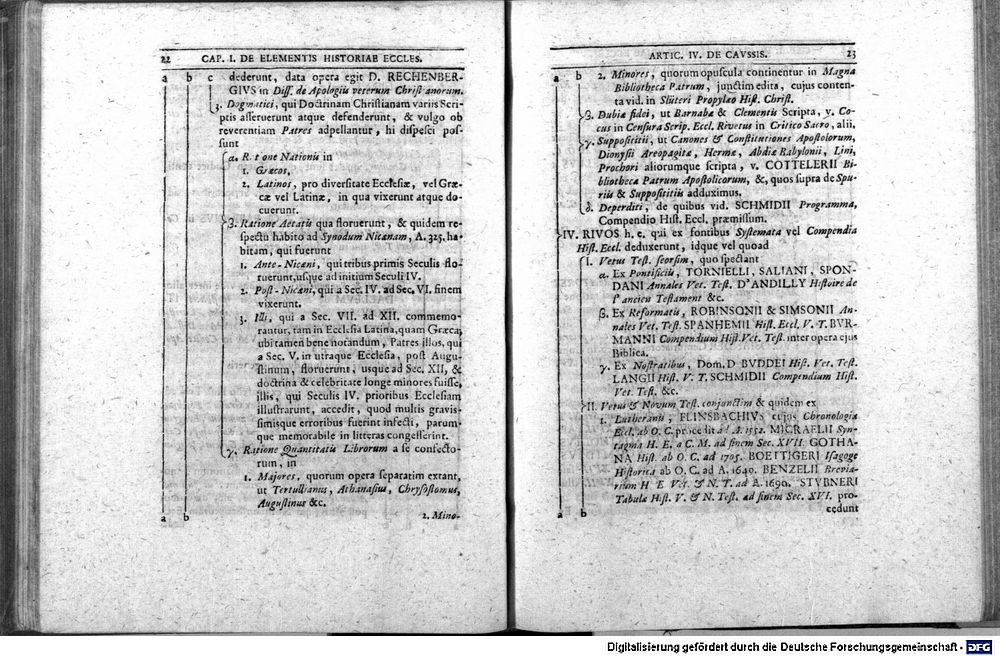 22 CAP. I. DE ELEMENTIS HISTORIAE ECCLES.
a b c dederunt, data opera egit D. RECHENBER-
GIVS in Diss. de Apologiis veterum Christianorum.
3. Dogmatici, qui Doctrinam Christianam variis Scri-
ptis asseruerunt atque defenderunt, & vulgo ob
reverentiam Patres adpellantur, hi dispesci pos-
sunt
α. Ratione Nationis in
1. Græcos,
2. Latinos, pro diversitate Ecclesiæ, vel Græ-
cæ vel Latinæ, in qua vixerunt atque do-
cuerunt.
β. Ratione Aetatis qua floruerunt, & quidem re-
spectu habito ad Synodum Nicænam, A. 325. ha-
bitam, qui fuerunt
1. Ante-Nicæni, qui tribus primis Seculis flo-
ruerunt, usque ad initium Seculi IV.
2. Post-Nicæni, qui a Sec. IV. ad Sec. VI. finem
vixerunt.
3. Illi, qui a Sec. VII. ad XII. commemo-
rantur, tam in Ecclesia Latina, quam Græca,
ubi tamen bene notandum, Patres illos, qui
a Sec. V. in utraque Ecclesia, post Augu-
stinum, floruerunt, usque ad Sec. XII, &
doctrina & celebritate longe minores fuisse,
illis, qui Seculis IV. prioribus Ecclesiam
illustrarunt, accedit, quod multis gravis-
simisque erroribus fuerint infecti, parum-
que memorabile in litteras congesserint.
γ. Ratione Quantitatis Librorum a se confecto-
rum, in
1. Majores, quorum opera separatim extant,
ut Tertullianus, Athanasius, Chrysostomus,
Augustinus &c.
a b 2. Mino-
ARTIC. IV. DE CAVSSIS. 23
a b 2. Minores, quorum opuscula continentur in Magna
Bibliotheca Patrum, junctim edita, cujus conten-
ta vid. in Sluteri Propylæo Hist. Christ.
β. Dubiæ fidei, ut Barnabæ & Clementis Scripta, v. Co-
cus in Censura Scrip. Eccl. Rivetus in Critico Sacro, alii.
γ. Supposititii, ut Canones & Constitutiones Apostolorum,
Dionysii Areopagitæ, Hermæ, Abdiæ Babylonii, Lini,
Prochori aliorumque scripta, v. COTTELERII Bi-
bliotheca Patrum Apostolicorum, &, quos supra de Spu-
riis & Supposititiis adduximus.
δ. Deperditi, de quibus vid. SCHMIDII Programma,
Compendio Hist. Eccl. præmissum.
IV. RIVOS h. e. qui ex fontibus Systemata vel Compendia
Hist. Eccl. deduxerunt, idque vel quoad
I. Vetus Test. seorsim, quo spectant
α. Ex Pontificiis, TORNIELLI, SALIANI, SPON-
DANI Annales Vet. Test. D'ANDILLY Histoire de
l'ancien Testament &c.
β. Ex Reformatis, ROBINSONII & SIMSONII An-
nales Vet. Test. SPANHEMII Hist. Eccl. V. T. BVR-
MANNI Compendium Hist. Vet. Test. inter opera ejus
Biblica.
γ. Ex Nostratibus, Dom. D BVDDEI Hist. Vet. Test.
LANGII Hist. V. T. SCHMIDII Compendium Hist.
Vet. Test. &c.
II. Vetus & Novum Test. conjunctim & quidem ex
1. Lutheranis, FLINSBACHIVS cujus Chronologia
Eccl. ab O. C. procedit ad A. 1552. MICRAELII Syn-
tagma H. E. a C. M. ad finem Sec. XVII. GOTHA-
NA Hist. ab O. C. ad 1705. BOETTIGERI Isagoge
Historica ab O. C. ad A. 1640. BENZELII Brevia-
rium H E Vet. & N. T. ad A. 1690. STVBNERI
Tabulæ Hist. V. & N. Test. ad finem Sec. XVI. pro-
a b cedunt
Digitalisierung gefördert durch die Deutsche Forschungsgemeinschaft - DFG